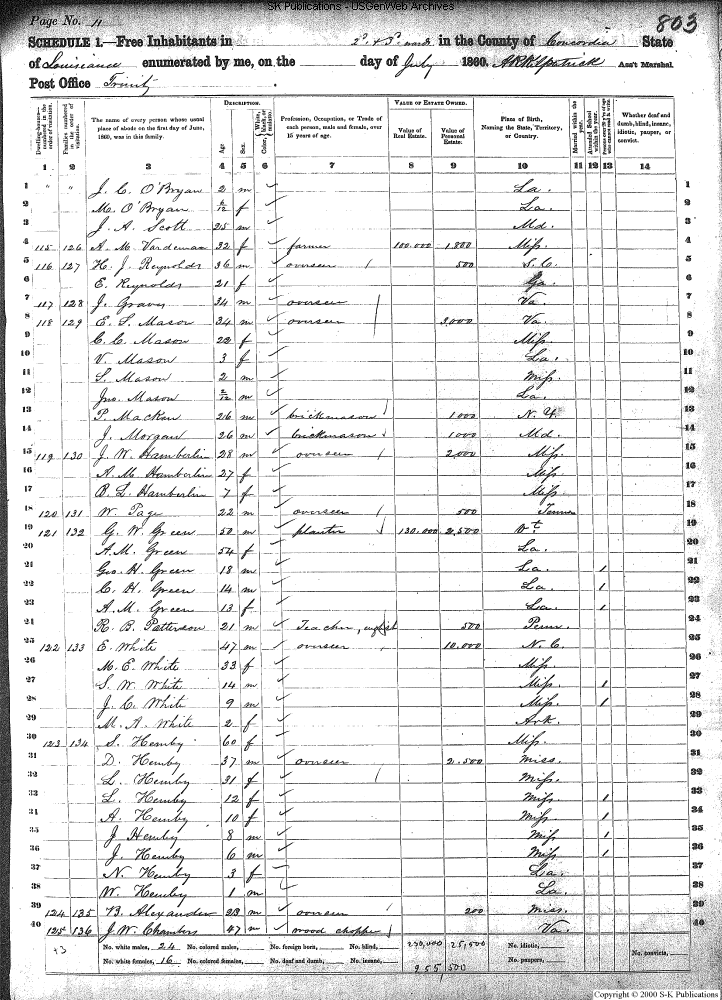 SK Publications - USGenWeb Archives
Page No. 11
803
SCHEDULE 1.—Free Inhabitants in 2d & 3d wards in the County of Concordia State
of Louisiana enumerated by me, on the day of July 1860. Ass't Marshal.
Post Office Trinity
DESCRIPTION. VALUE OF ESTATE OWNED.
Dwelling-houses—numbered in the order of visitation. Families numbered in the order of visitation. The name of every person whose usual place of abode on the first day of June, 1860, was in this family. Age Sex. Color, White, black, or mulatto. Profession, Occupation, or Trade of each person, male and female, over 15 years of age. Value of Real Estate. Value of Personal Estate. Place of Birth, Naming the State, Territory, or Country. Married within the year. Attended School within the year. Whether deaf and dumb, blind, insane, idiotic, pauper, or convict.
1 2 3 4 5 6 7 8 9 10 11 12 13 14
1 " " J. C. O'Bryan 2 m ✓ La. 1
2 M. O'Bryan f ✓ La. 2
3 J. A. Scott 25 m ✓ Md. 3
4 115 126 A. M. Vardeman 32 f ✓ farmer 100.000 1.800 Miss. 4
5 116 127 H. J. Reynolds 36 m ✓ overseer / 500 S. C. 5
6 E. Reynolds 21 f ✓ Ga. 6
7 117 128 J. Graves 34 m ✓ overseer / Va. 7
8 118 129 E. S. Mason 34 m ✓ overseer / 3,000 Va. 8
9 C. C. Mason 22 f ✓ Miss. 9
10 V. Mason 3 f ✓ La. 10
11 S. Mason 2 m ✓ Miss. 11
12 Jno. Mason 2/12 m ✓ La. 12
13 P. Mackan 26 m ✓ brickmason 1000 N. Y. 13
14 J. Morgan 26 m ✓ brickmason 1000 Md. 14
15 119 130 J. W. Hamberlin 28 m ✓ overseer / 2,000 Miss. 15
16 A. M. Hamberlin 27 f ✓ Miss. 16
17 B. L. Hamberlin 7 f ✓ Miss. 17
18 120 131 W. Page 22 m ✓ overseer / 500 Tenn 18
19 121 132 G. W. Green 50 m ✓ planter / 130.000 2,500 Vt 19
20 A. M. Green 54 f ✓ La. 20
21 Geo. H. Green 18 m ✓ La. 1 21
22 C. H. Green 14 m ✓ La. 1 22
23 A. M. Green 13 f ✓ La. 1 23
24 R. B. Patterson 21 m ✓ Teacher, english 500 Penn. 24
25 122 133 E. White 47 m ✓ overseer / 10.000 N. C. 25
26 M. E. White 33 f ✓ Miss. 26
27 S. W. White 14 m ✓ Miss. 1 27
28 J. C. White 9 m ✓ Miss. 1 28
29 M. A. White 2 f ✓ Ark. 29
30 123 134 S. Hemby 60 f ✓ Miss. 30
31 D. Hemby 37 m ✓ overseer 2.500 Miss. 31
32 L. Hemby 31 f ✓ / Miss. 32
33 L. Hemby 12 f ✓ Miss. 1 33
34 A. Hemby 10 f ✓ Miss. 1 34
35 J. Hemby 8 m ✓ Miss. 1 35
36 J. Hemby 6 m ✓ Miss. 1 36
37 N. Hemby 3 f La. 37
38 W. Hemby 1 m La. 38
39 124 135 B. Alexander 28 m ✓ overseer / 200 Miss. 39
40 125 136 J. W. Chambers 47 m ✓ wood chopper Va. 40
No. white males, 24 No. colored males, No. foreign born, No. blind, 230,000 25,500 No. idiotic, No. convicts,
No. white females, 16 No. colored females, No. deaf and dumb, No. insane, No. paupers,
255,500
Copyright © 2000 S-K Publications